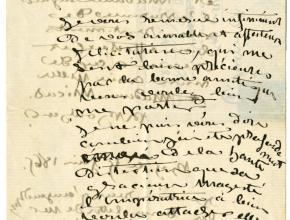 Je vous remercie infiniment
de vos aimables et affectueuses
félicitations, qui me
sont bien précieuses
par la bonne amitié que
vous voulez bien
me porter.
Je ne puis vous dire
combien j'ai été
de la haute
distinction que sa
gracieuse Majesté
l'Impératrice a bien
voulu attacher